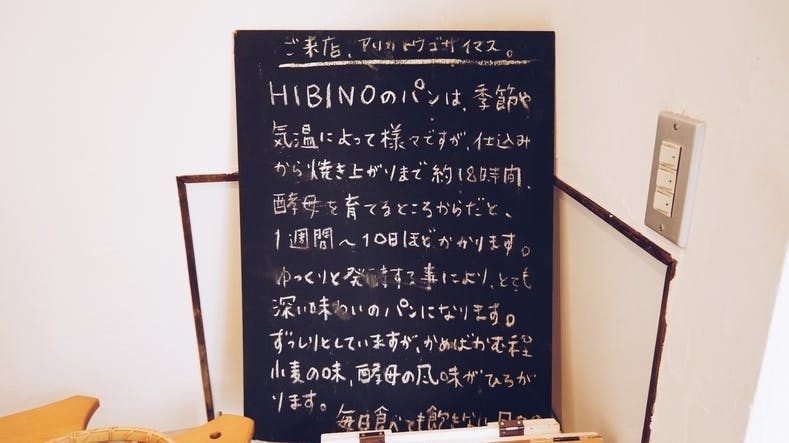 ご来店、アリガトウゴザイマス。
HIBINOのパンは、季節や
気温によって様々ですが、仕込み
から焼き上がりまで約18時間、
酵母を育てるところからだと、
1週間〜10日ほどかかります。
ゆっくりと発酵する事により、とても
深い味わいのパンになります。
ずっしりとしていますが、かめばかむ程
小麦の味、酵母の風味がひろが
ります。
毎日食べても飽きない